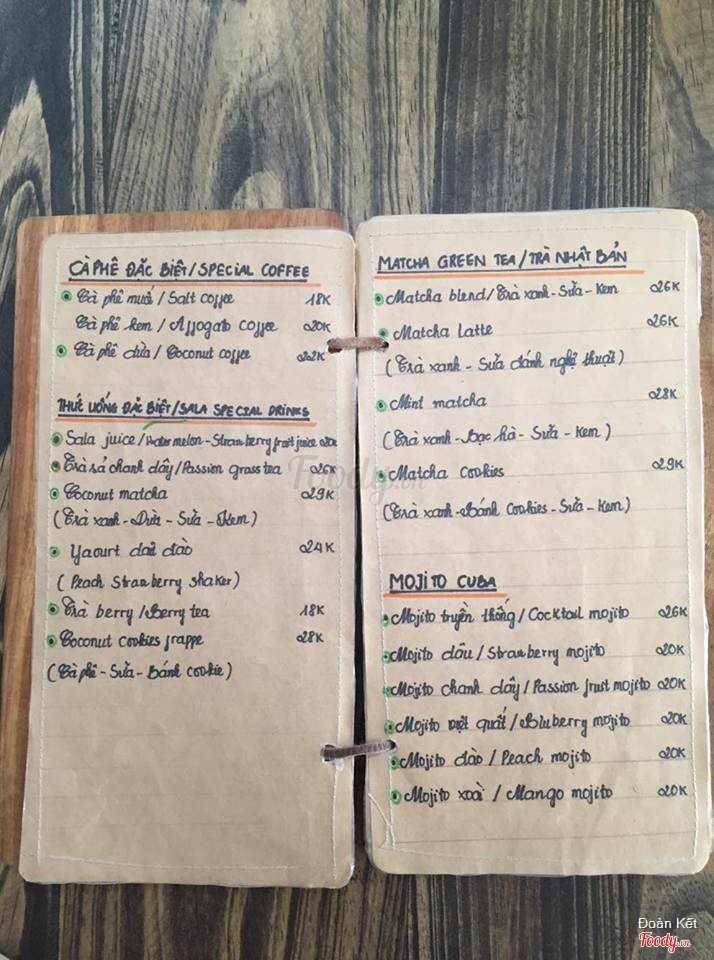 CÀ PHÊ ĐẶC BIỆT/SPECIAL COFFEE
Cà phê muối / Salt coffee 18K
Cà phê kem / Affogato coffee 20K
Cà phê dừa / Coconut coffee 22K
THỨC UỐNG ĐẶC BIỆT/SALA SPECIAL DRINKS
Sala juice/Water melon - Stranberry fruit juice 20K
Trà sả chanh dây/Passion grass tea 26K
Coconut matcha 29K
(Trà xanh - Dừa - Sữa - Kem)
Yaourt dâu đào 24K
(Peach Stranberry shaker)
Trà berry/Berry tea 18K
Coconut cookies frappe 28K
(Cà phê - Sữa - Bánh cookie)
MATCHA GREEN TEA/TRÀ NHẬT BẢN
Matcha blend/Trà xanh - Sữa - Kem 26K
Matcha Latte 26K
(Trà xanh - Sữa đánh nghệ thuật)
Mint matcha 28K
(Trà xanh - Bạc hà - Sữa - Kem)
Matcha Cookies 29K
(Trà xanh - Bánh Cookies - Sữa - Kem)
MOJITO CUBA
Mojito truyền thống/Cocktail mojito 26K
Mojito dâu/Stranberry mojito 20K
Mojito chanh dây/Passion fruit mojito 20K
Mojito việt quất/Bluberry mojito 20K
Mojito đào/Peach mojito 20K
Mojito xoài/Mango mojito 20K
Foody.vn
Đoàn Kết
Foody.vn